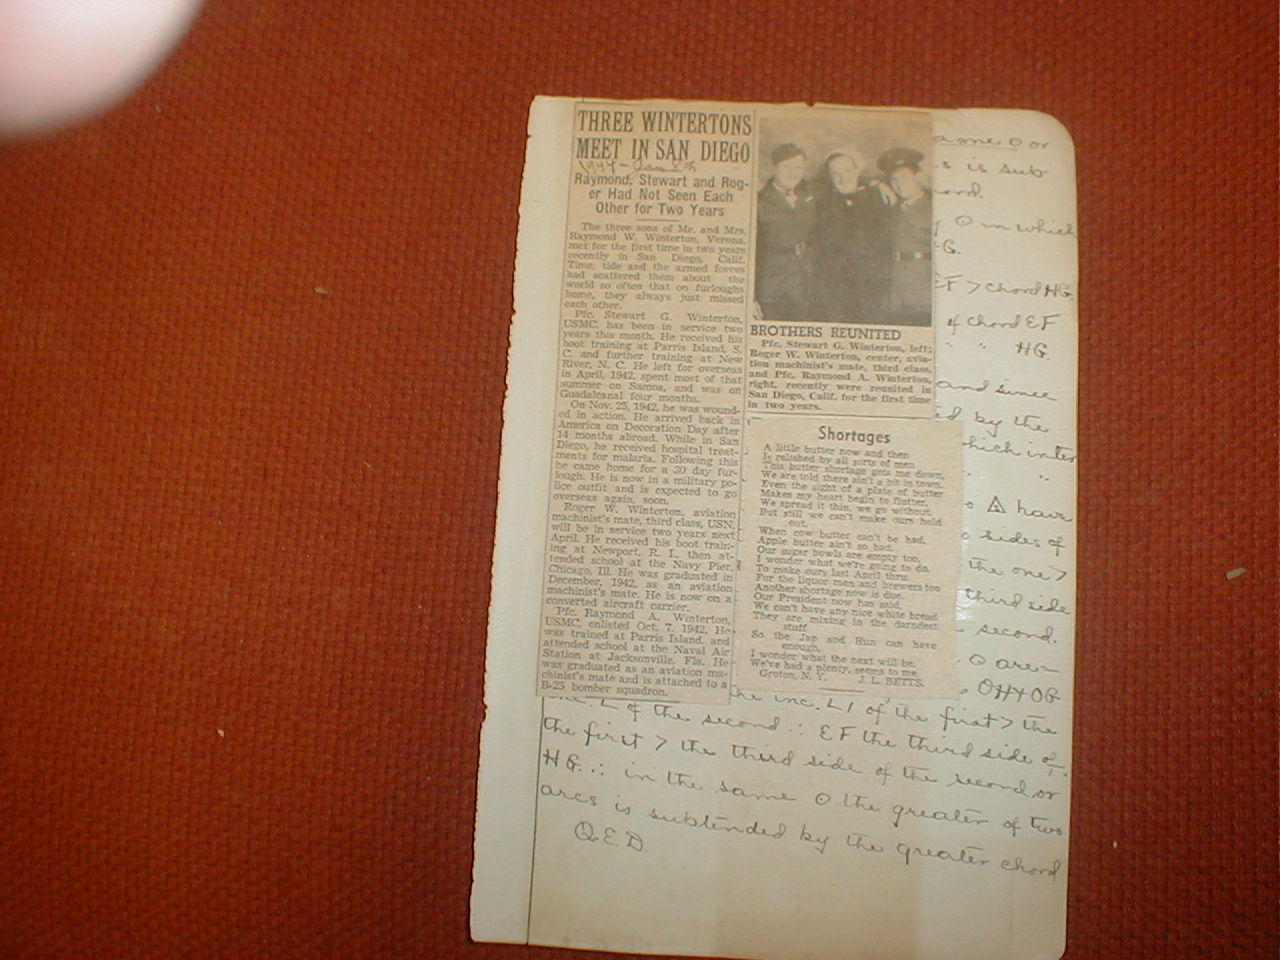 THREE WINTERTONS
MEET IN SAN DIEGO
1944 - Jan 8th
Raymond, Stewart and Rog-
er Had Not Seen Each
Other for Two Years
The three sons of Mr. and Mrs.
Raymond W. Winterton, Verona,
met for the first time in two years
recently in San Diego, Calif.
Time, tide and the armed forces
had scattered them about the
world so often that on furloughs
home, they always just missed
each other.
Pfc. Stewart G. Winterton,
USMC, has been in service two
years this month. He received his
boot training at Parris Island, S.
C. and further training at New
River, N. C. He left for overseas
in April, 1942, spent most of that
summer on Samoa, and was on
Guadalcanal four months.
On Nov. 25, 1942, he was wound-
ed in action. He arrived back in
America on Decoration Day after
14 months abroad. While in San
Diego, he received hospital treat-
ments for malaria. Following this
he came home for a 30 day fur-
lough. He is now in a military po-
lice outfit and is expected to go
overseas again, soon.
Roger W. Winterton, aviation
machinist's mate, third class, USN,
will be in service two years next
April. He received his boot train-
ing at Newport, R. I., then at-
tended school at the Navy Pier,
Chicago, Ill. He was graduated in
December, 1942, as an aviation
machinist's mate. He is now on a
converted aircraft carrier.
Pfc. Raymond A. Winterton,
USMC, enlisted Oct. 7, 1942. He
was trained at Parris Island, and
attended school at the Naval Air
Station at Jacksonville, Fla. He
was graduated as an aviation ma-
chinist's mate and is attached to a
B-25 bomber squadron.
BROTHERS REUNITED
Pfc. Stewart G. Winterton, left;
Roger W. Winterton, center, avia-
tion machinist's mate, third class,
and Pfc. Raymond A. Winterton,
right, recently were reunited in
San Diego, Calif. for the first time
in two years.
Shortages
A little butter now and then
Is relished by all sorts of men
This butter shortage gets me down,
We are told there ain't a bit in town.
Even the sight of a plate of butter
Makes my heart begin to flutter.
We spread it thin, we go without,
But still we can't make ours hold
out.
When cow butter can't be had,
Apple butter ain't so bad.
Our sugar bowls are empty too,
I wonder what we're going to do.
To make ours last April thru.
For the liquor men and brewers too
Another shortage now is due.
Our President now has said,
We can't have any nice white bread
They are mixing in the darndest
stuff
So the Jap and Hun can have
enough.
I wonder what the next will be.
We've had a plenty, seems to me.
Groton, N. Y. J. L. BETTS.
ame O or
s is sub
ord.
O in which
G.
EF > chord HG
of chord EF
" " HG.
and since
ed by the
which inter
" "
have
sides of
the one >
third side
second.
O are =
OH + OG
the inc. L 1 of the first > the
inc. L of the second ∴ EF the third side of
the first > the third side of the second or
HG. ∴ in the same O the greater of two
arcs is subtended by the greater chord
Q.E.D.